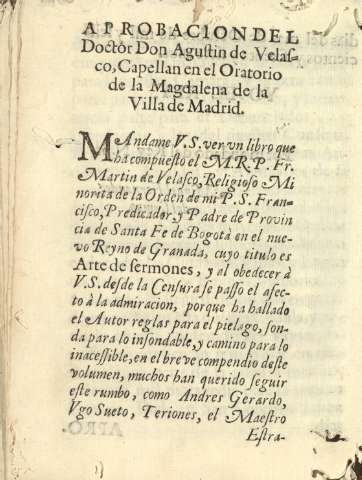 APROBACION DEL
Doctor Don Agustin de Velas-
co, Capellan en el Oratorio
de la Magdalena de la
Villa de Madrid.
MAndame V.S. ver vn libro que
ha compuesto el M.R.P. Fr.
Martin de Velasco, Religioso Mi
norita de la Orden de mi P.S. Fran-
cisco, Predicador, y Padre de Provin
cia de Santa Fe de Bogotà en el nue-
vo Reyno de Granada, cuyo titulo es
Arte de sermones, y al obedecer à
V.S. desde la Censura se passo el afec-
to à la admiracion, porque ha hallado
el Autor reglas para el pielago, son-
da para lo insondable, y camino para lo
inacessible, en el breve compendio deste
volumen, muchos han querido seguir
este rumbo, como Andres Gerardo,
Vgo Sueto, Teriones, el Maestro
Estra-